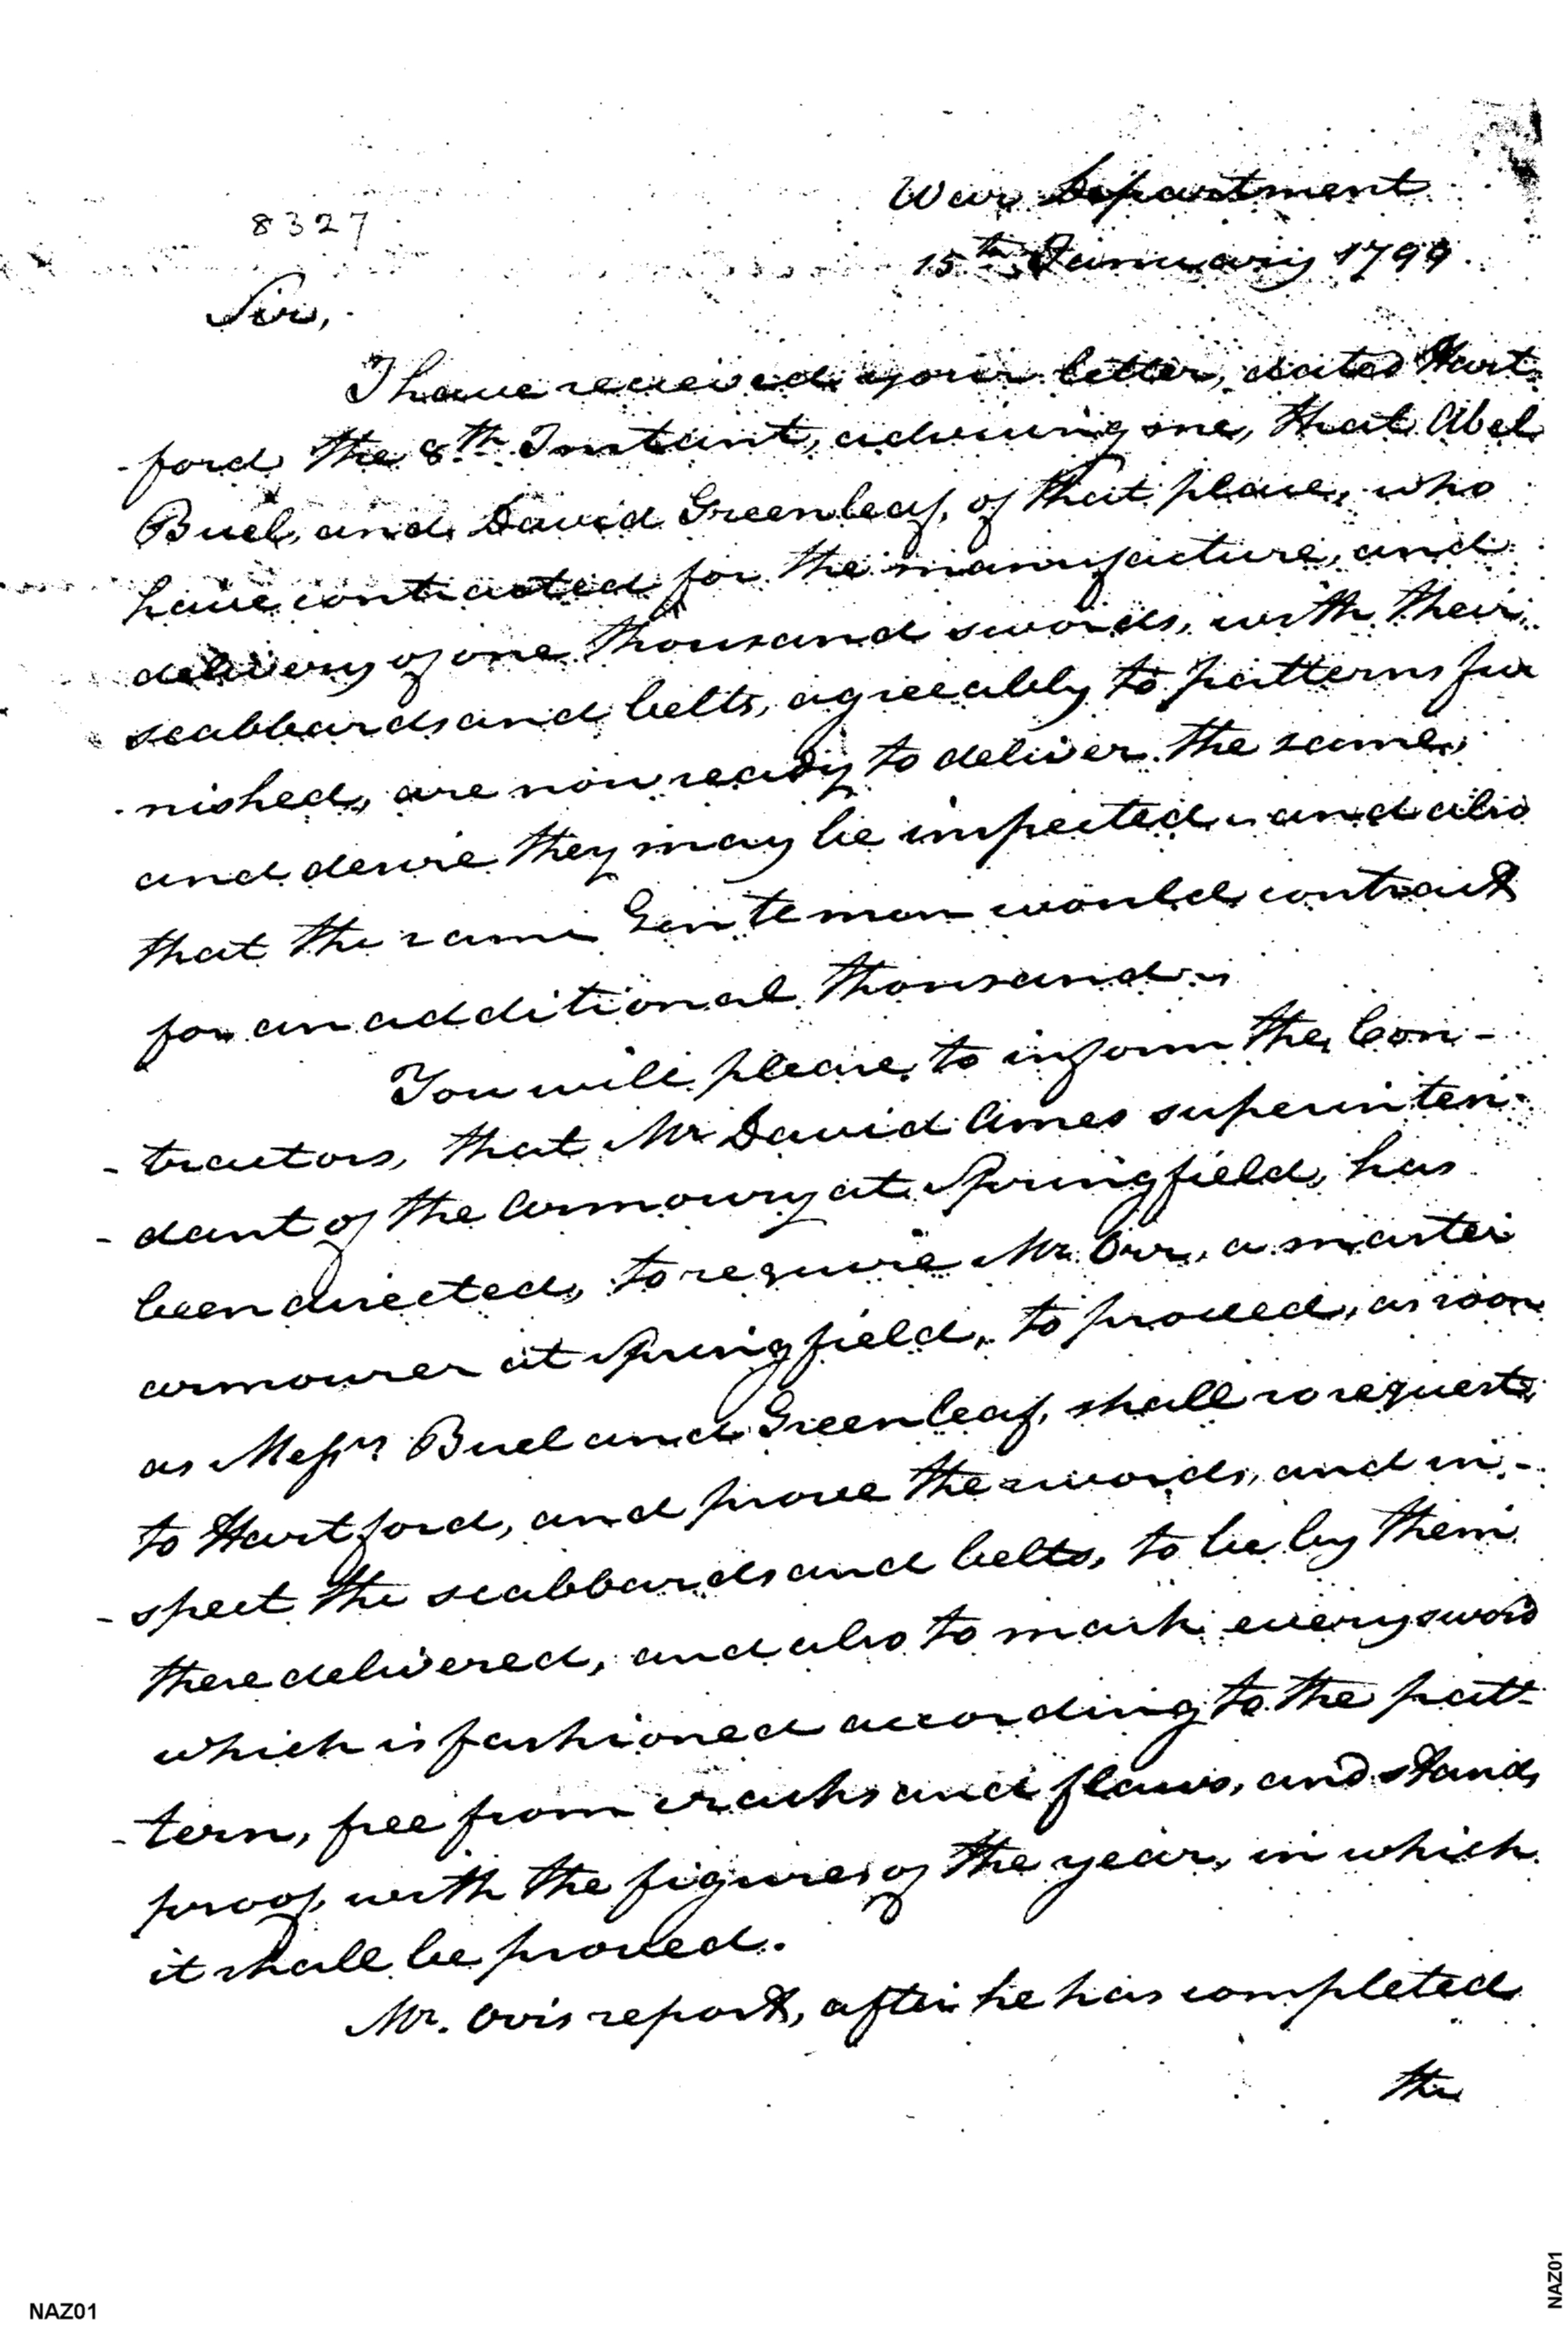 War Department
8327
15th January 1799.
Sir,
I have received your letter, dated Hart
-ford the 8th Instant, advising me, that Abel
Buel, and David Greenleaf, of that place, who
have contracted for the manufacture, and
delivery of one thousand swords, with their
scabbards and belts, agreeably to patterns fur
-nished, are now ready to deliver the same,
and desire they may be inspected, and also
that the same Gentemen would contract
for an additional thousand.
You will please to inform the Con-
-tractors, that Mr David Ames superinten-
-dant of the Armoury at Springfield, has
been directed, to require Mr. Orr, a master
armourer at Springfield, to proceed, as soon
as Messrs Buel and Greenleaf, shall so request,
to Hartford, and prove the swords, and in-
-spect the scabbards and belts, to be by them
there delivered, and also to mark every sword
which is fashioned according to the patt-
-tern, free from cracks and flaws, and stands
proof, with the figures of the year, in which
it shall be proved.
Mr. Orrs report, after he has completed
the
NAZ01
NAZ01